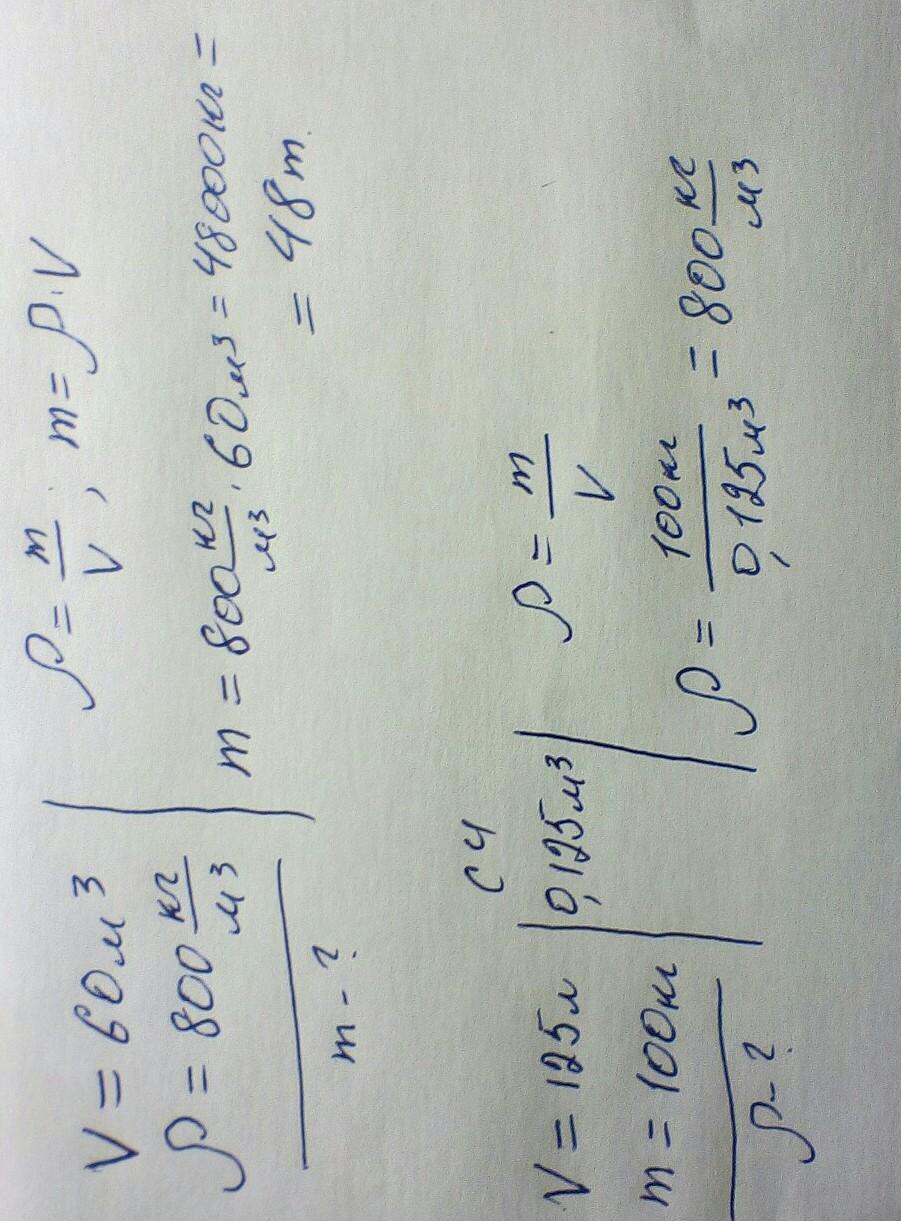 V = 60 м³
ρ = 800 кг/м³
m - ?
ρ = m/V ; m = ρ·V
m = 800 кг/м³ · 60 м³ = 48000 кг =
= 48 т.
СИ
V = 125 л | 0,125 м³
m = 100 кг
ρ - ?
ρ = m/V
ρ = 100 кг/0,125 м³ = 800 кг/м³